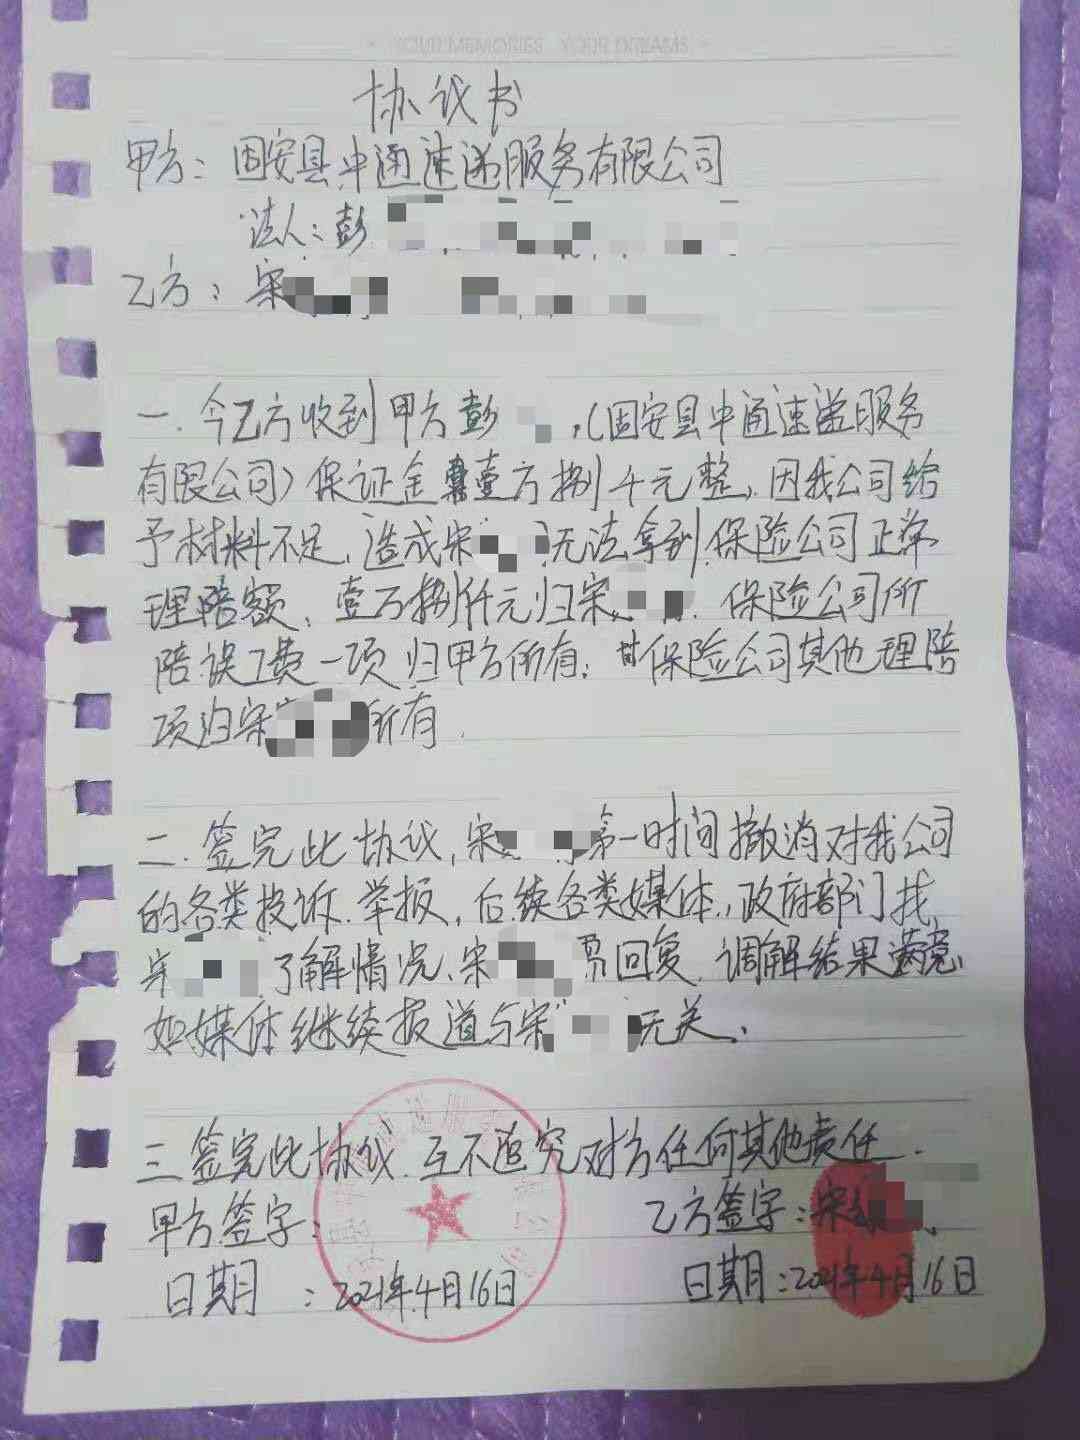 YOUR MEMORIES YOUR DREAMS
协议书
甲方：固安县中通速递服务有限公司
法人：彭
乙方：宋
一.今乙方收到甲方彭，(固安县中通速递服务
有限公司)保证金壹万捌仟元整，因我公司给
予材料不足，造成宋无法拿到保险公司正常
理陪额、壹万捌仟元归宋.保险公司所
陪误工费一项归甲方所有；保险公司其他理陪
项归宋所有.
二.签完此协议，宋第一时间撤消对我公司
的各类投诉.举报，后续各类媒体，政府部门找
宋了解情况、宋回复.调解结果满意、
如媒体继续报道与宋无关.
三签完此协议.互不追究对方任何其他责任.
甲方签字：
乙方签字：宋
日期：2021年4月16日
日期：2021年4月16日